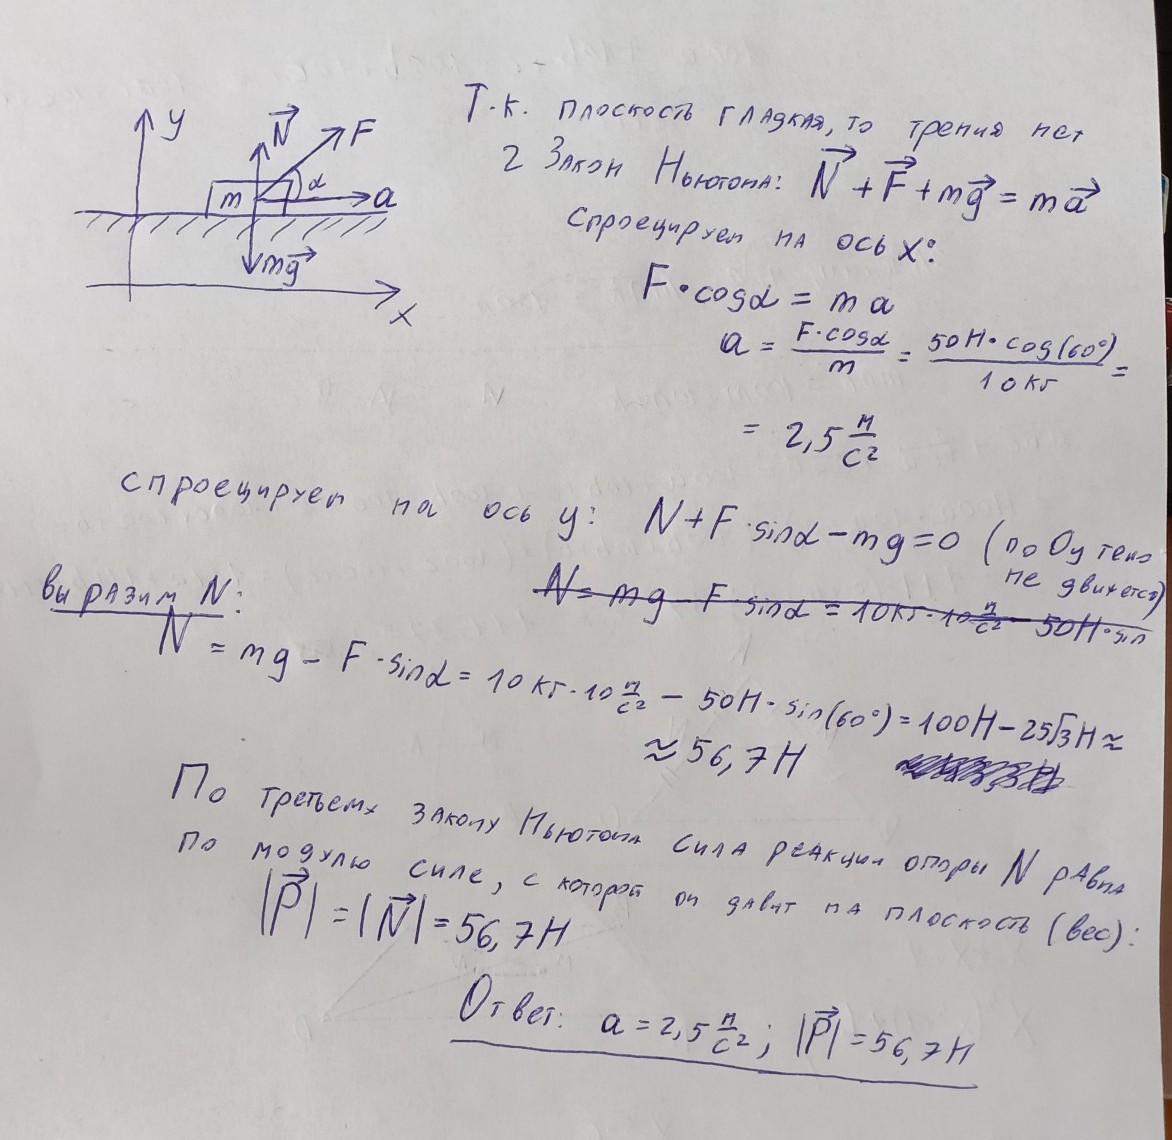 y
N
F
α
m
a
mg
x
Т.к. плоскость гладкая, то трения нет
2 Закон Ньютона: N + F + mg = ma
Спроецируем на ось x:
F·cosα = ma
a = F·cosα/m = 50Н·cos(60°)/10кг =
= 2,5 м/с²
спроецируем на ось y: N+F·sinα-mg=0 (по Oy тело
не движется)
N = mg - F·sinα = 10кг·10 м/с² - 50Н·sin
выразим N:
N = mg - F·sinα = 10кг·10 м/с² - 50Н·sin(60°) = 100Н - 25√3Н ≈
≈ 56,7Н
По третьему закону Ньютона сила реакции опоры N равна
по модулю силе, с которой он давит на плоскость (вес):
|P| = |N| = 56,7Н
Ответ: a = 2,5 м/с²; |P| = 56,7Н